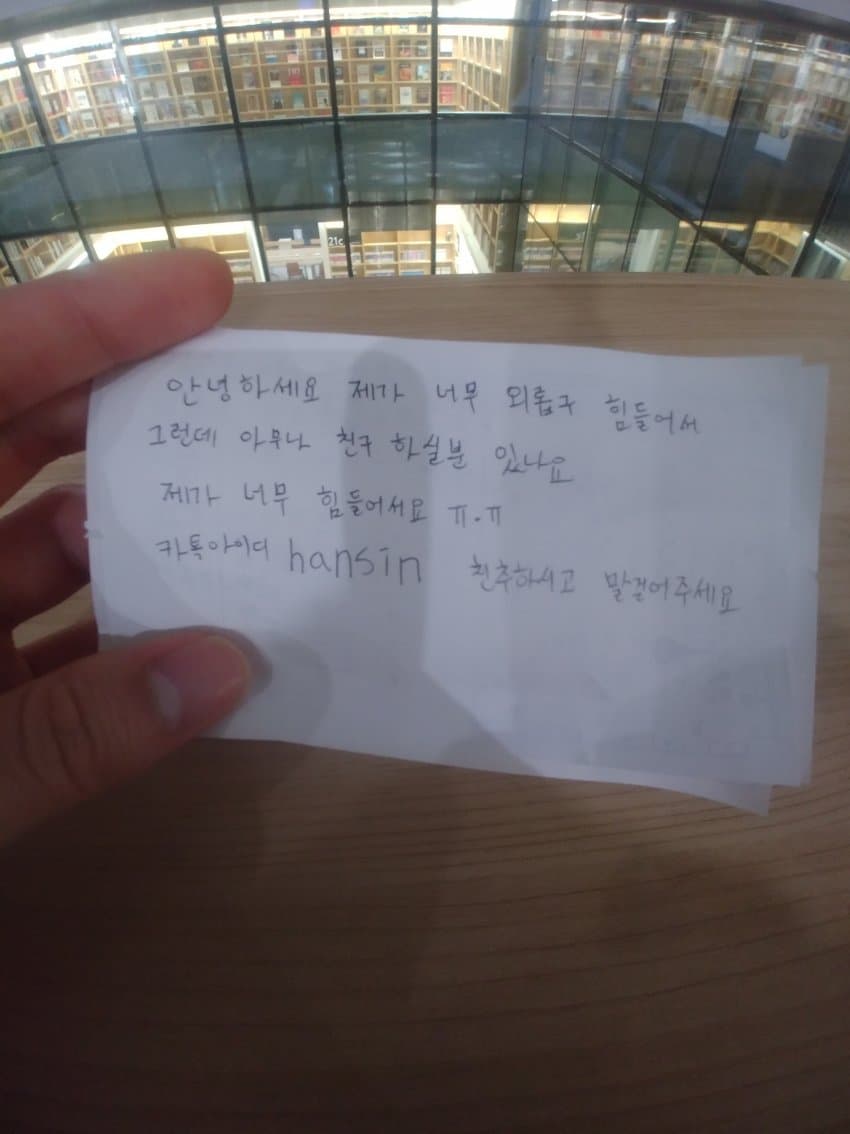 안녕하세요 제가 너무 외롭구 힘들어서
그런데 아무나 친구 하실분 있나요
제가 너무 힘들어서요 ㅠ.ㅠ
카톡아이디 hansin 친추하시고 말걸어주세요
21c